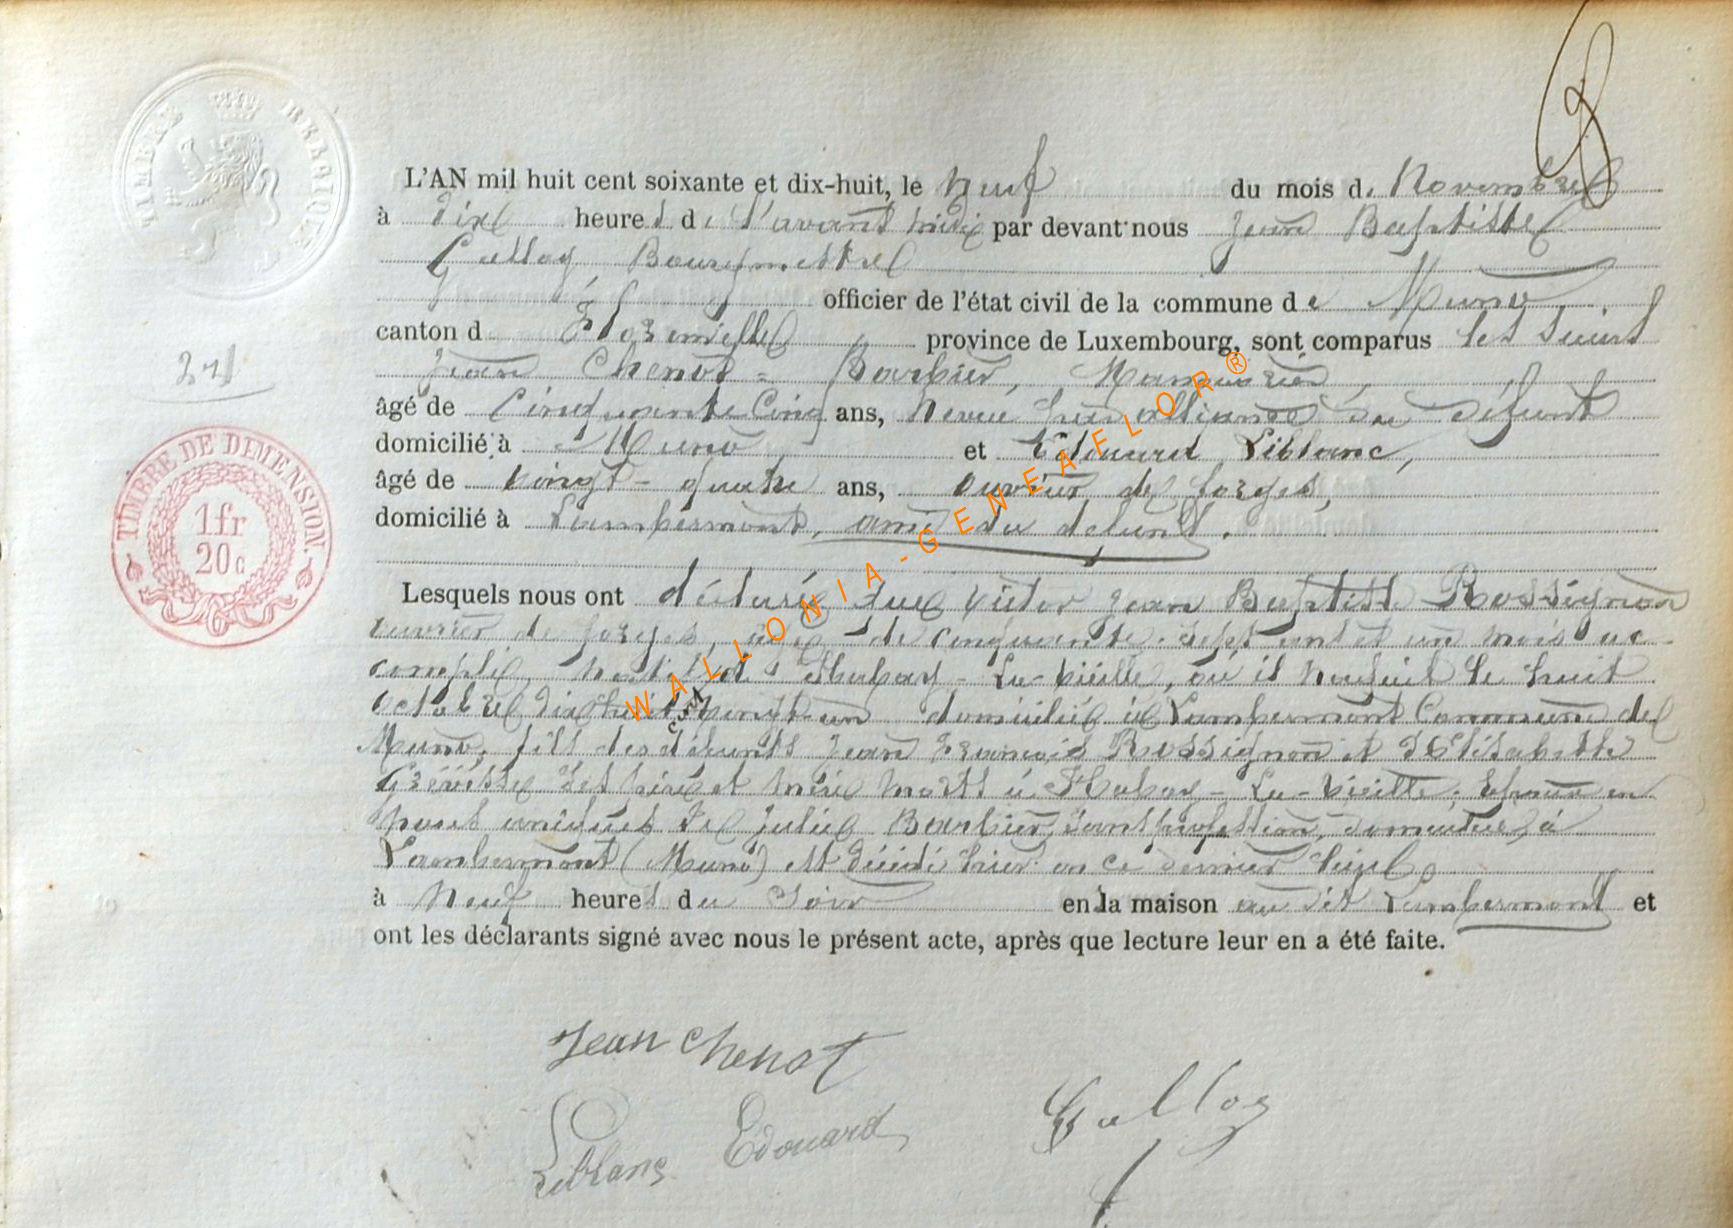 TIMBRE BELGIQUE
L'AN mil huit cent soixante et dix-huit, le Neuf du mois de Novembre
à Dix heures de l'avant midi par devant nous Jean Baptiste
Galloy Bourgmestre
officier de l'état civil de la commune de Muno,
canton d Florenville province de Luxembourg, sont comparus les Sieurs
Jean Chenot = Barbier,
âgé de Cinquante Cinq ans, Neveu par alliance du défunt
domicilié à Muno et Edouard Leblanc,
âgé de vingt-quatre ans, ouvrier de forges,
domicilié à Lambermont, ami du defunt.
TIMBRE DE DIMENSION.
1fr
20c
Lesquels nous ont déclaré que Victor Jean Baptiste Rossignon
ouvrier de forges, âgé de cinquante-sept ans et un mois ac-
complis, natif d'Habay-La-Vieille, où il naquit le huit
octobre dix huit cent vingt un domicilié à Lambermont Commune de
Muno, fils des défunts Jean François Rossignon et d'Elisabeth
des père et mère morts à Habay-La-Vieille; Epoux en
de Julie Barbier, sans profession, domiciliée à
Lambermont (Muno) est décédé hier en ce dernier lieu
à Neuf heures du Soir en la maison au dit Lambermont et
ont les déclarants signé avec nous le présent acte, après que lecture leur en a été faite.
Jean Chenot
Leblanc Edouard
Galloy
WALLONIA-GENEAFLOR®